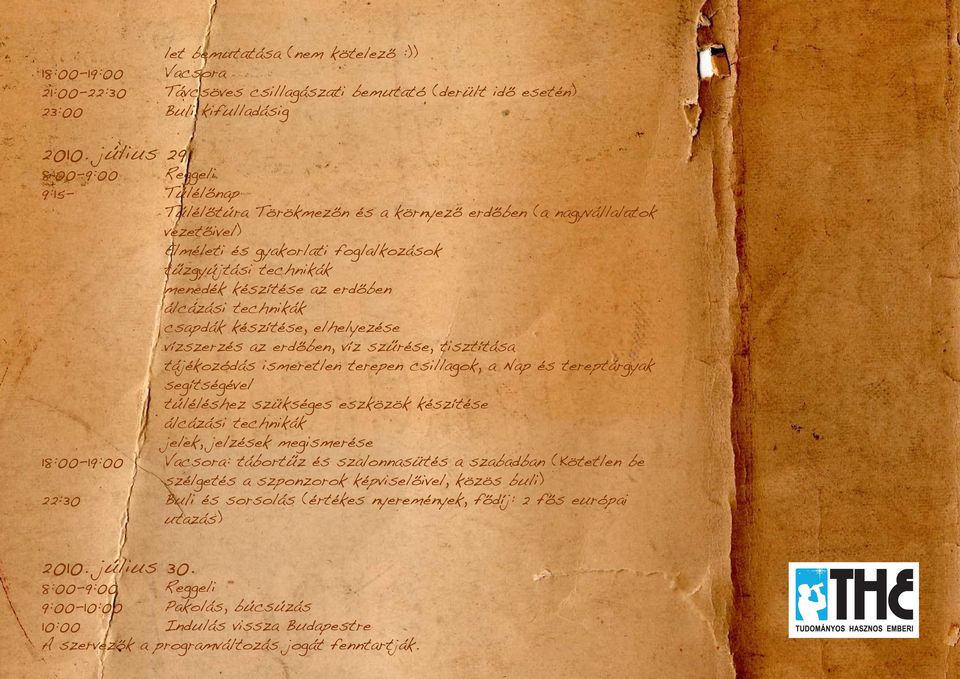 let bemutatása (nem kötelező :))
18:00-19:00 Vacsora
21:00-22:30 Távcsöves csillagászati bemutató (derült idő esetén)
23:00 Buli kifulladásig
2010. július 29.
8:00-9:00 Reggeli
9:15- Túlélőnap
Túlélőtúra Törökmezőn és a környező erdőben (a nagyvállalatok
vezetőivel)
Elméleti és gyakorlati foglalkozások
tűzgyújtási technikák
menedék készítése az erdőben
álcázási technikák
csapdák készítése, elhelyezése
vízszerzés az erdőben, víz szűrése, tisztítása
tájékozódás ismeretlen terepen csillagok, a Nap és tereptárgyak
segítségével
túléléshez szükséges eszközök készítése
álcázási technikák
jelek, jelzések megismerése
18:00-19:00 Vacsora: tábortűz és szalonnasütés a szabadban (Kötetlen be
szélgetés a szponzorok képviselőivel, közös buli)
22:30 Buli és sorsolás (értékes nyeremények, fődíj: 2 fős európai
utazás)
2010. július 30.
8:00-9:00 Reggeli
9:00-10:00 Pakolás, búcsúzás
10:00 Indulás vissza Budapestre
A szervezők a programváltozás jogát fenntartják.
THE
TUDOMÁNYOS HASZNOS EMBERI